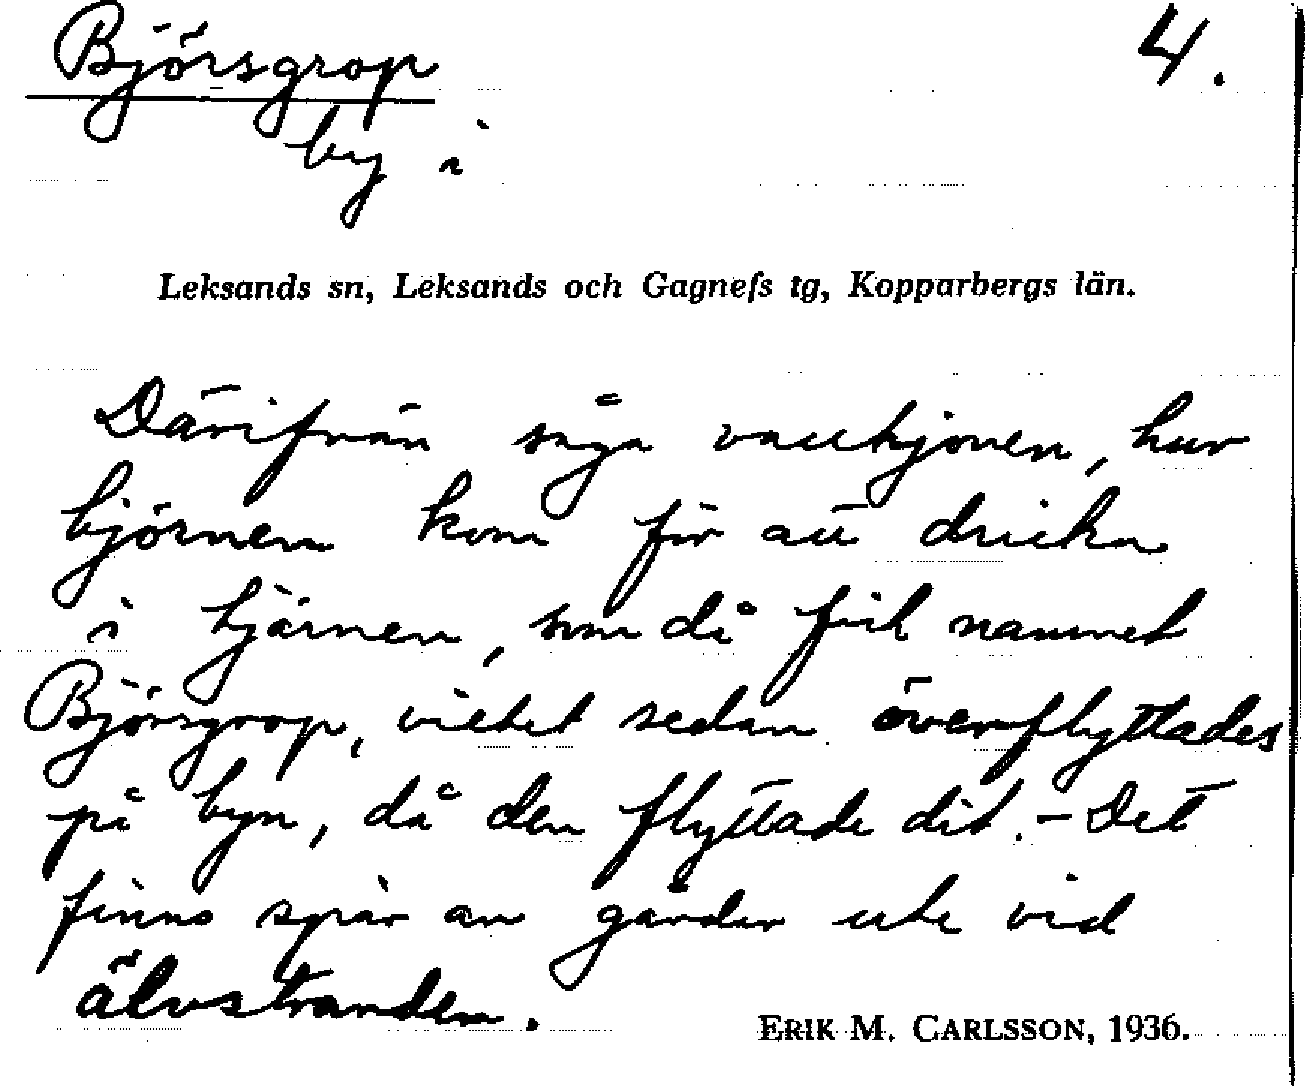 Björsgrop 4.
by i
Leksands sn, Leksands och Gagnefs tg, Kopparbergs län.
Därifrån såga vattkjonen, hur
björnen kom för att dricka
i tjärnen, som då fick namnet
Björsgrop, vilket sedan överflyttades
på byn, då den flyttade dit. - Det
finns spår av gårdar ute vid
älvstranden.
ERIK M. CARLSSON, 1936.